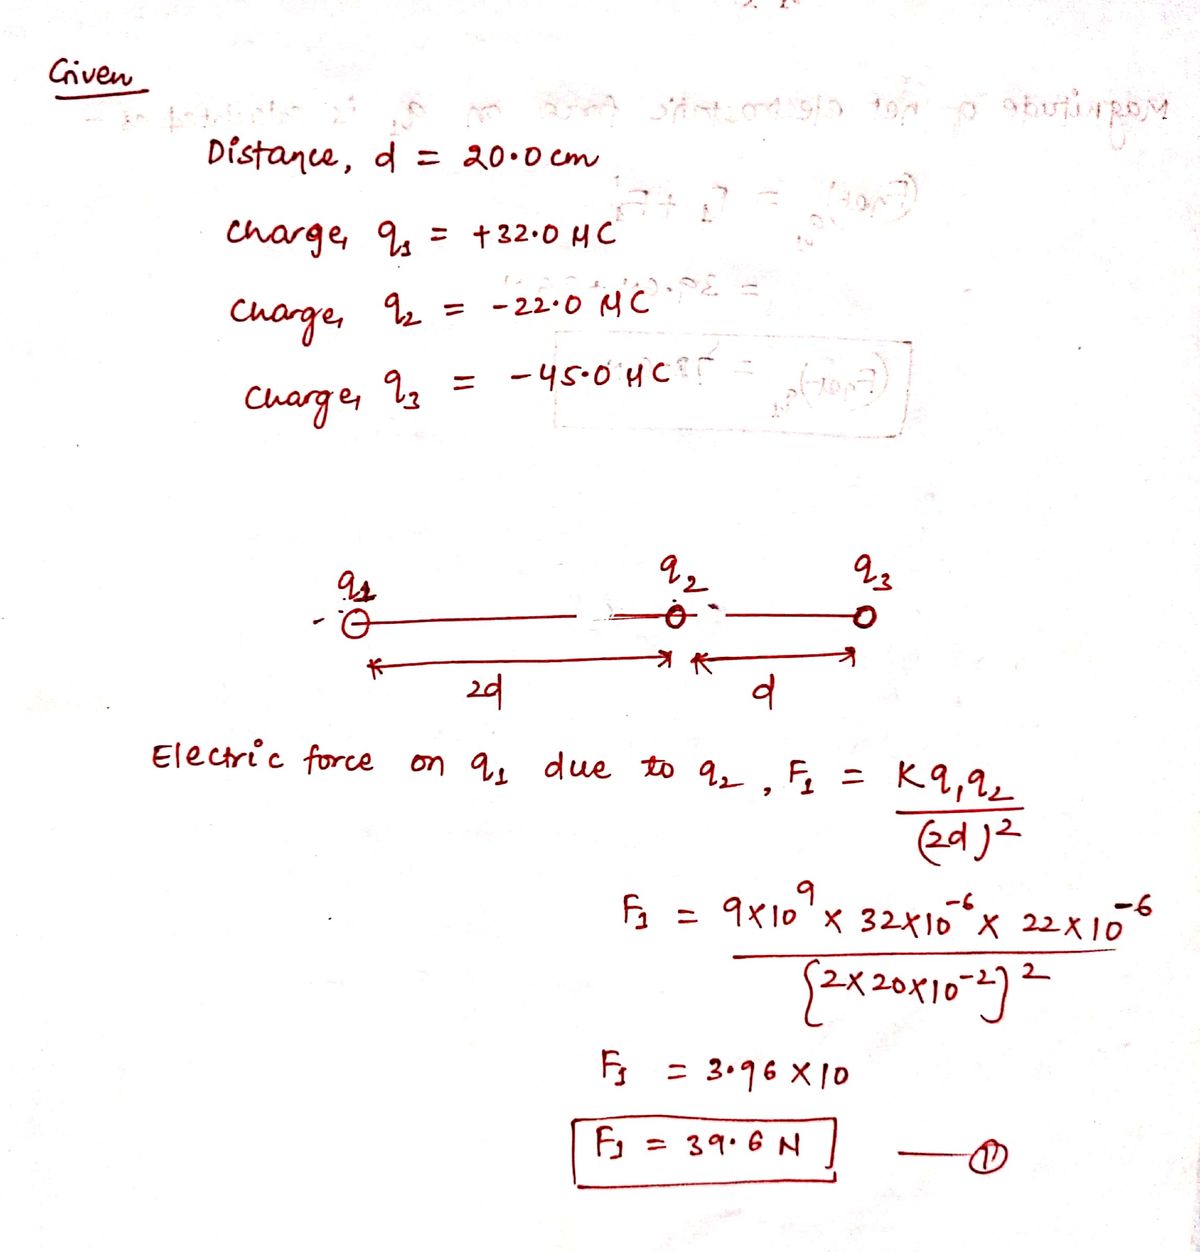 Given
Distance, d = 20.0 cm
Charge, q₁ = +32.0 μC
Charge, q₂ = -22.0 μC
Charge, q₃ = -45.0 μC
q₁ q₂ q₃
2d d
Electric force on q₁ due to q₂, F₁ = Kq₁q₂ / (2d)²
F₁ = 9×10⁹ × 32×10⁻⁶ × 22×10⁻⁶ / {2×20×10⁻²}²
F₁ = 3.96 × 10
F₁ = 39.6 N — ①